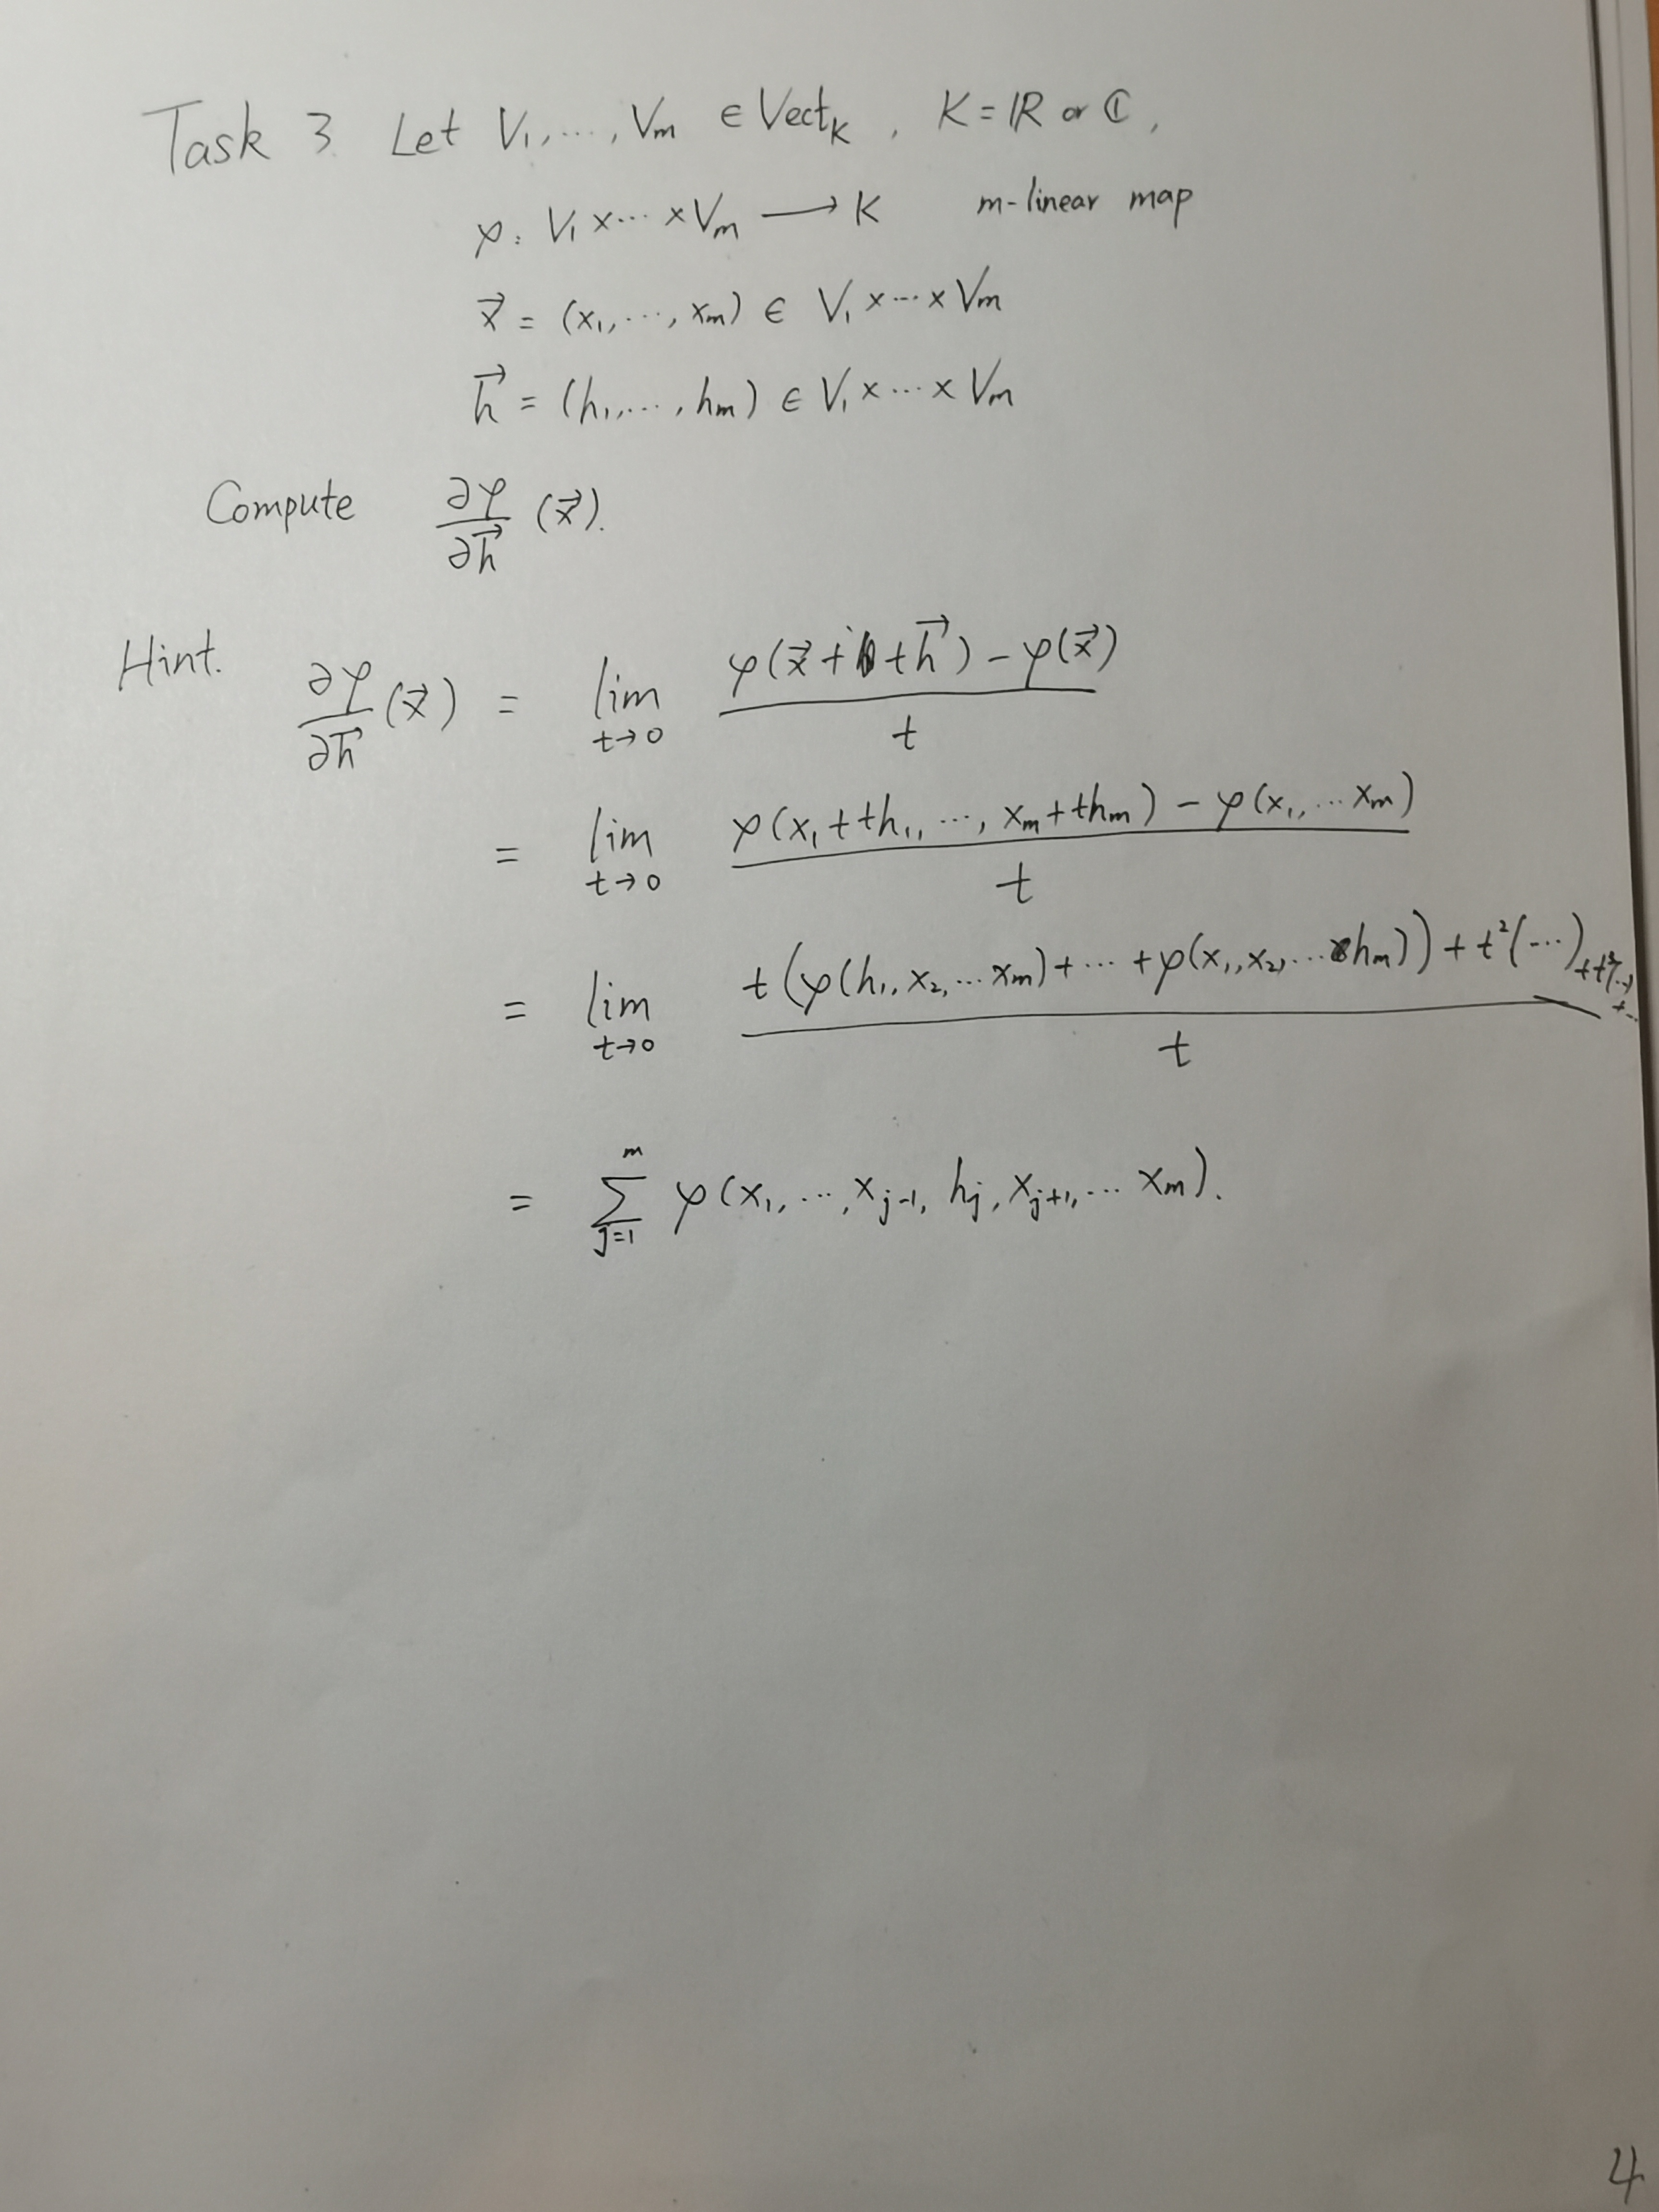 Task 3. Let V₁, ..., Vₘ ∈ Vect_K, K = ℝ or ℂ,
φ: V₁ × ... × Vₘ ⟶ K m-linear map
x⃗ = (x₁, ..., xₘ) ∈ V₁ × ... × Vₘ
h⃗ = (h₁, ..., hₘ) ∈ V₁ × ... × Vₘ
Compute ∂φ/∂h⃗ (x⃗).
Hint. ∂φ/∂h⃗ (x⃗) = lim_{t→0} (φ(x⃗ + t h⃗) - φ(x⃗)) / t
= lim_{t→0} (φ(x₁ + th₁, ..., xₘ + thₘ) - φ(x₁, ... xₘ)) / t
= lim_{t→0} (t(φ(h₁, x₂, ... xₘ) + ... + φ(x₁, x₂, ... hₘ)) + t²(...) + t³(...) + ...) / t
= ∑_{j=1}^{m} φ(x₁, ..., x_{j-1}, h_j, x_{j+1}, ... xₘ).
4